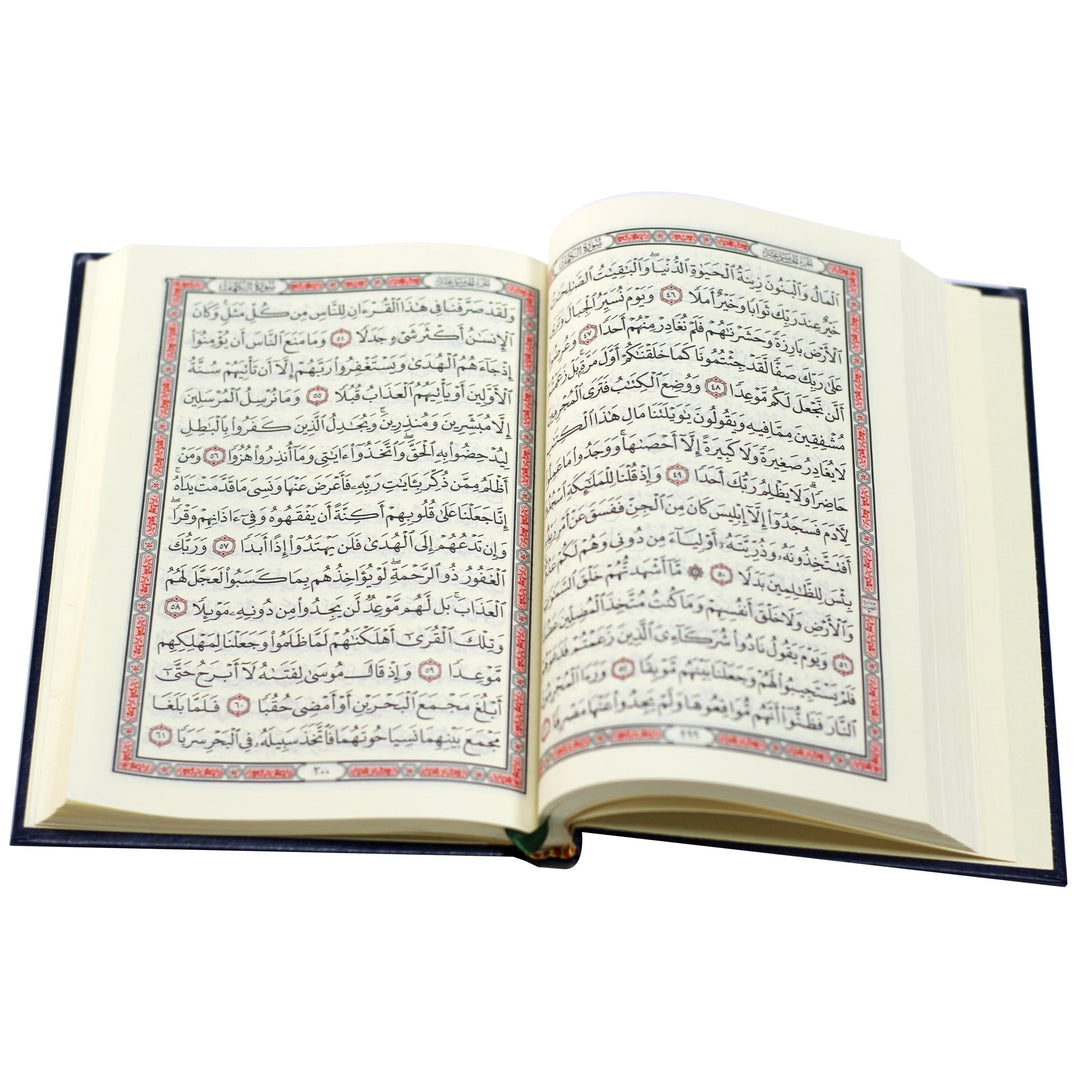 الجزء الخامس عشر
سورة الكهف
الْمَالُ وَالْبَنُونَ زِينَةُ الْحَيَوٰةِ الدُّنْيَا ۖ وَالْبَٰقِيَٰتُ
خَيْرٌ عِندَ رَبِّكَ ثَوَابًا وَخَيْرٌ أَمَلًا ٤٦ وَيَوْمَ نُسَيِّرُ الْجِبَالَ
الْأَرْضَ بَارِزَةً وَحَشَرْنَٰهُمْ فَلَمْ نُغَادِرْ مِنْهُمْ أَحَدًا ٤٧
عَلَىٰ رَبِّكَ صَفًّا لَّقَدْ جِئْتُمُونَا كَمَا خَلَقْنَٰكُمْ أَوَّلَ مَرَّةٍ ۚ بَلْ
أَلَّن نَّجْعَلَ لَكُم مَّوْعِدًا ٤٨ وَوُضِعَ الْكِتَٰبُ فَتَرَى
مُشْفِقِينَ مِمَّا فِيهِ وَيَقُولُونَ يَٰوَيْلَتَنَا مَالِ هَٰذَا
لَا يُغَادِرُ صَغِيرَةً وَلَا كَبِيرَةً إِلَّا أَحْصَىٰهَا ۚ وَوَجَدُوا۟ مَا
حَاضِرًا ۗ وَلَا يَظْلِمُ رَبُّكَ أَحَدًا ٤٩ وَإِذْ قُلْنَا لِلْمَلَٰٓئِكَةِ
لِأَدَمَ فَسَجَدُوٓا۟ إِلَّآ إِبْلِيسَ كَانَ مِنَ الْجِنِّ فَفَسَقَ عَنْ أَمْرِ
أَفَتَتَّخِذُونَهُۥ وَذُرِّيَّتَهُۥٓ أَوْلِيَآءَ مِن دُونِى وَهُمْ لَكُمْ
بِئْسَ لِلظَّٰلِمِينَ بَدَلًا ٥٠ ۞ مَّآ أَشْهَدتُّهُمْ خَلْقَ
وَالْأَرْضِ وَلَا خَلْقَ أَنفُسِهِمْ وَمَا كُنتُ مُتَّخِذَ الْمُضِلِّينَ
٥١ وَيَوْمَ يَقُولُ نَادُوا۟ شُرَكَآءِىَ الَّذِينَ زَعَمْتُمْ
فَلَمْ يَسْتَجِيبُوا۟ لَهُمْ وَجَعَلْنَا بَيْنَهُم مَّوْبِقًا ٥٢ وَرَءَا
النَّارَ فَظَنُّوٓا۟ أَنَّهُم مُّوَاقِعُوهَا وَلَمْ يَجِدُوا۟ عَنْهَا مَصْرِفًا
٢٩٩
الجزء الخامس عشر
سورة الكهف
وَلَقَدْ صَرَّفْنَا فِى هَٰذَا الْقُرْءَانِ لِلنَّاسِ مِن كُلِّ مَثَلٍ ۚ وَكَانَ
الْإِنسَٰنُ أَكْثَرَ شَىْءٍ جَدَلًا ٥٤ وَمَا مَنَعَ النَّاسَ أَن يُؤْمِنُوٓا۟
إِذْ جَآءَهُمُ الْهُدَىٰ وَيَسْتَغْفِرُوا۟ رَبَّهُمْ إِلَّآ أَن تَأْتِيَهُمْ سُنَّةُ
الْأَوَّلِينَ أَوْ يَأْتِيَهُمُ الْعَذَابُ قُبُلًا ٥٥ وَمَا نُرْسِلُ الْمُرْسَلِينَ
إِلَّا مُبَشِّرِينَ وَمُنذِرِينَ ۚ وَيُجَٰدِلُ الَّذِينَ كَفَرُوا۟ بِالْبَٰطِلِ
لِيُدْحِضُوا۟ بِهِ الْحَقَّ ۖ وَاتَّخَذُوٓا۟ ءَايَٰتِى وَمَآ أُنذِرُوا۟ هُزُوًا ٥٦ وَمَنْ
أَظْلَمُ مِمَّن ذُكِّرَ بِـَٔايَٰتِ رَبِّهِۦ فَأَعْرَضَ عَنْهَا وَنَسِىَ مَا قَدَّمَتْ يَدَاهُ ۚ
إِنَّا جَعَلْنَا عَلَىٰ قُلُوبِهِمْ أَكِنَّةً أَن يَفْقَهُوهُ وَفِىٓ ءَاذَانِهِمْ وَقْرًا ۖ
وَإِن تَدْعُهُمْ إِلَى الْهُدَىٰ فَلَن يَهْتَدُوٓا۟ إِذًا أَبَدًا ٥٧ وَرَبُّكَ
الْغَفُورُ ذُو الرَّحْمَةِ ۖ لَوْ يُؤَاخِذُهُم بِمَا كَسَبُوا۟ لَعَجَّلَ لَهُمُ
الْعَذَابَ ۚ بَل لَّهُم مَّوْعِدٌ لَّن يَجِدُوا۟ مِن دُونِهِۦ مَوْئِلًا ٥٨
وَتِلْكَ الْقُرَىٰٓ أَهْلَكْنَٰهُمْ لَمَّا ظَلَمُوا۟ وَجَعَلْنَا لِمَهْلِكِهِم
مَّوْعِدًا ٥٩ وَإِذْ قَالَ مُوسَىٰ لِفَتَىٰهُ لَآ أَبْرَحُ حَتَّىٰٓ
أَبْلُغَ مَجْمَعَ الْبَحْرَيْنِ أَوْ أَمْضِىَ حُقُبًا ٦٠ فَلَمَّا بَلَغَا
مَجْمَعَ بَيْنِهِمَا نَسِيَا حُوتَهُمَا فَاتَّخَذَ سَبِيلَهُۥ فِى الْبَحْرِ سَرَبًا ٦١
٣٠٠